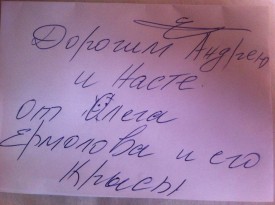 Дорогим Андрею
и Насте.
от Олега
Ермолова и его
Крысы